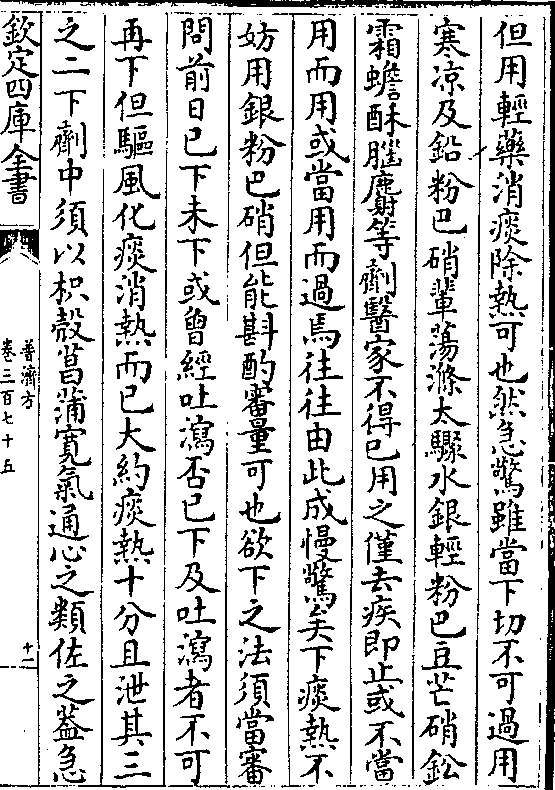 但用輕藥消痰除熱可也然急驚雖當下切不可過用
寒凉及鉛粉巴硝輩蕩滌太驟水銀輕粉巴豆芒硝鉛
霜蟾酥腦麝等劑醫家不得已用之僅去疾即止或不當
用而用或當用而過焉往往由此成慢驚矣下痰熱不
妨用銀粉巴硝但能斟酌審量可也欲下之法須當審
問前日已下未下或曾經吐瀉否已下及吐瀉者不可
再下但驅風化痰消熱而已大約痰熱十分且泄其三
之二下劑中須以枳殼菖蒲寛氣通心之類佐之葢急
欽定四庫全書
普濟方
卷三百七十五
十二